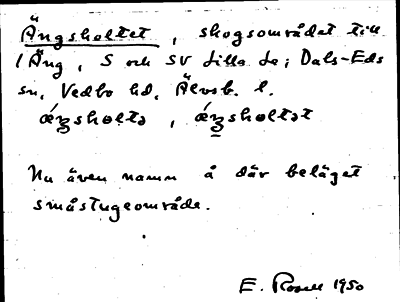 Ängsholtet, skogsområdet till
1 Äng, S och SV Lilla Le; Dals-Eds
sn, Vedbo hd, Älvsb. l.
ǽŋsholtə, ǽŋsholtət
Nu även namn å där beläget
småstugeområde.
E. Rosell 1950